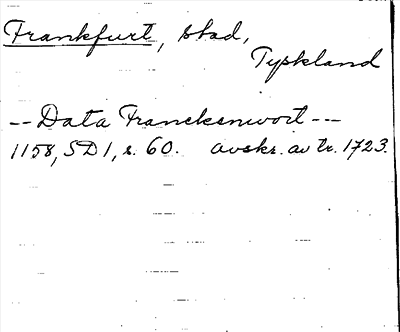 Frankfurt, stad,
Tyskland
-- Data Franckenvort ---
1158, SD1, s. 60. avskr. av tr. 1723.